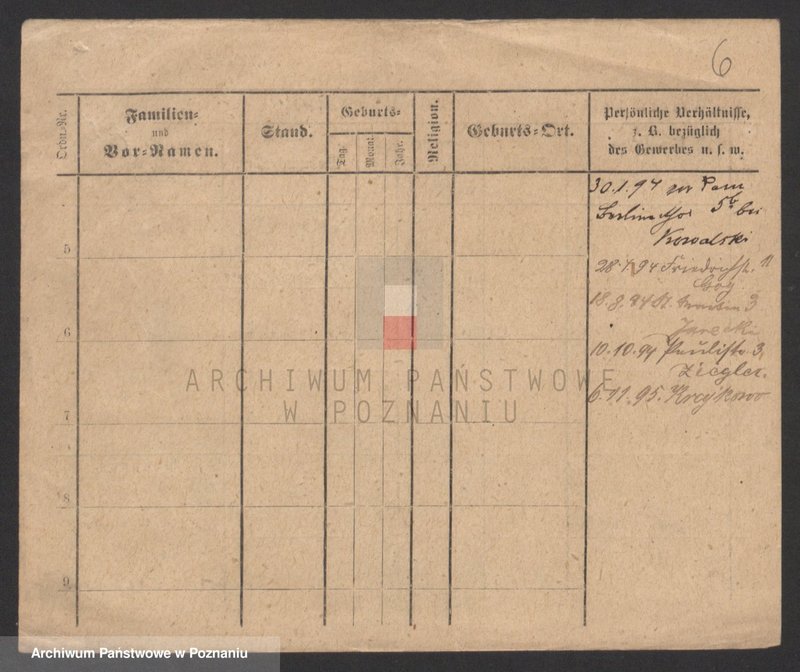 6
Ordn.-Nr.
Familien-
und
Vor-Namen.
Stand.
Geburts-
Tag.
Monat.
Jahr.
Religion.
Geburts-Ort.
Persönliche Verhältnisse,
z. B. bezüglich
des Gewerbes u. s. w.
5
6
7
8
9
30.1.94
5 b bei
Kowalski
28. 94 Friedrichstr. 11
18.8.94 St. Martin 3
Jarecki
10.10.94 Paulistr. 3.
Ziegler.
6.11.95.
ARCHIWUM PAŃSTWOWE
W POZNANIU
Archiwum Państwowe w Poznaniu